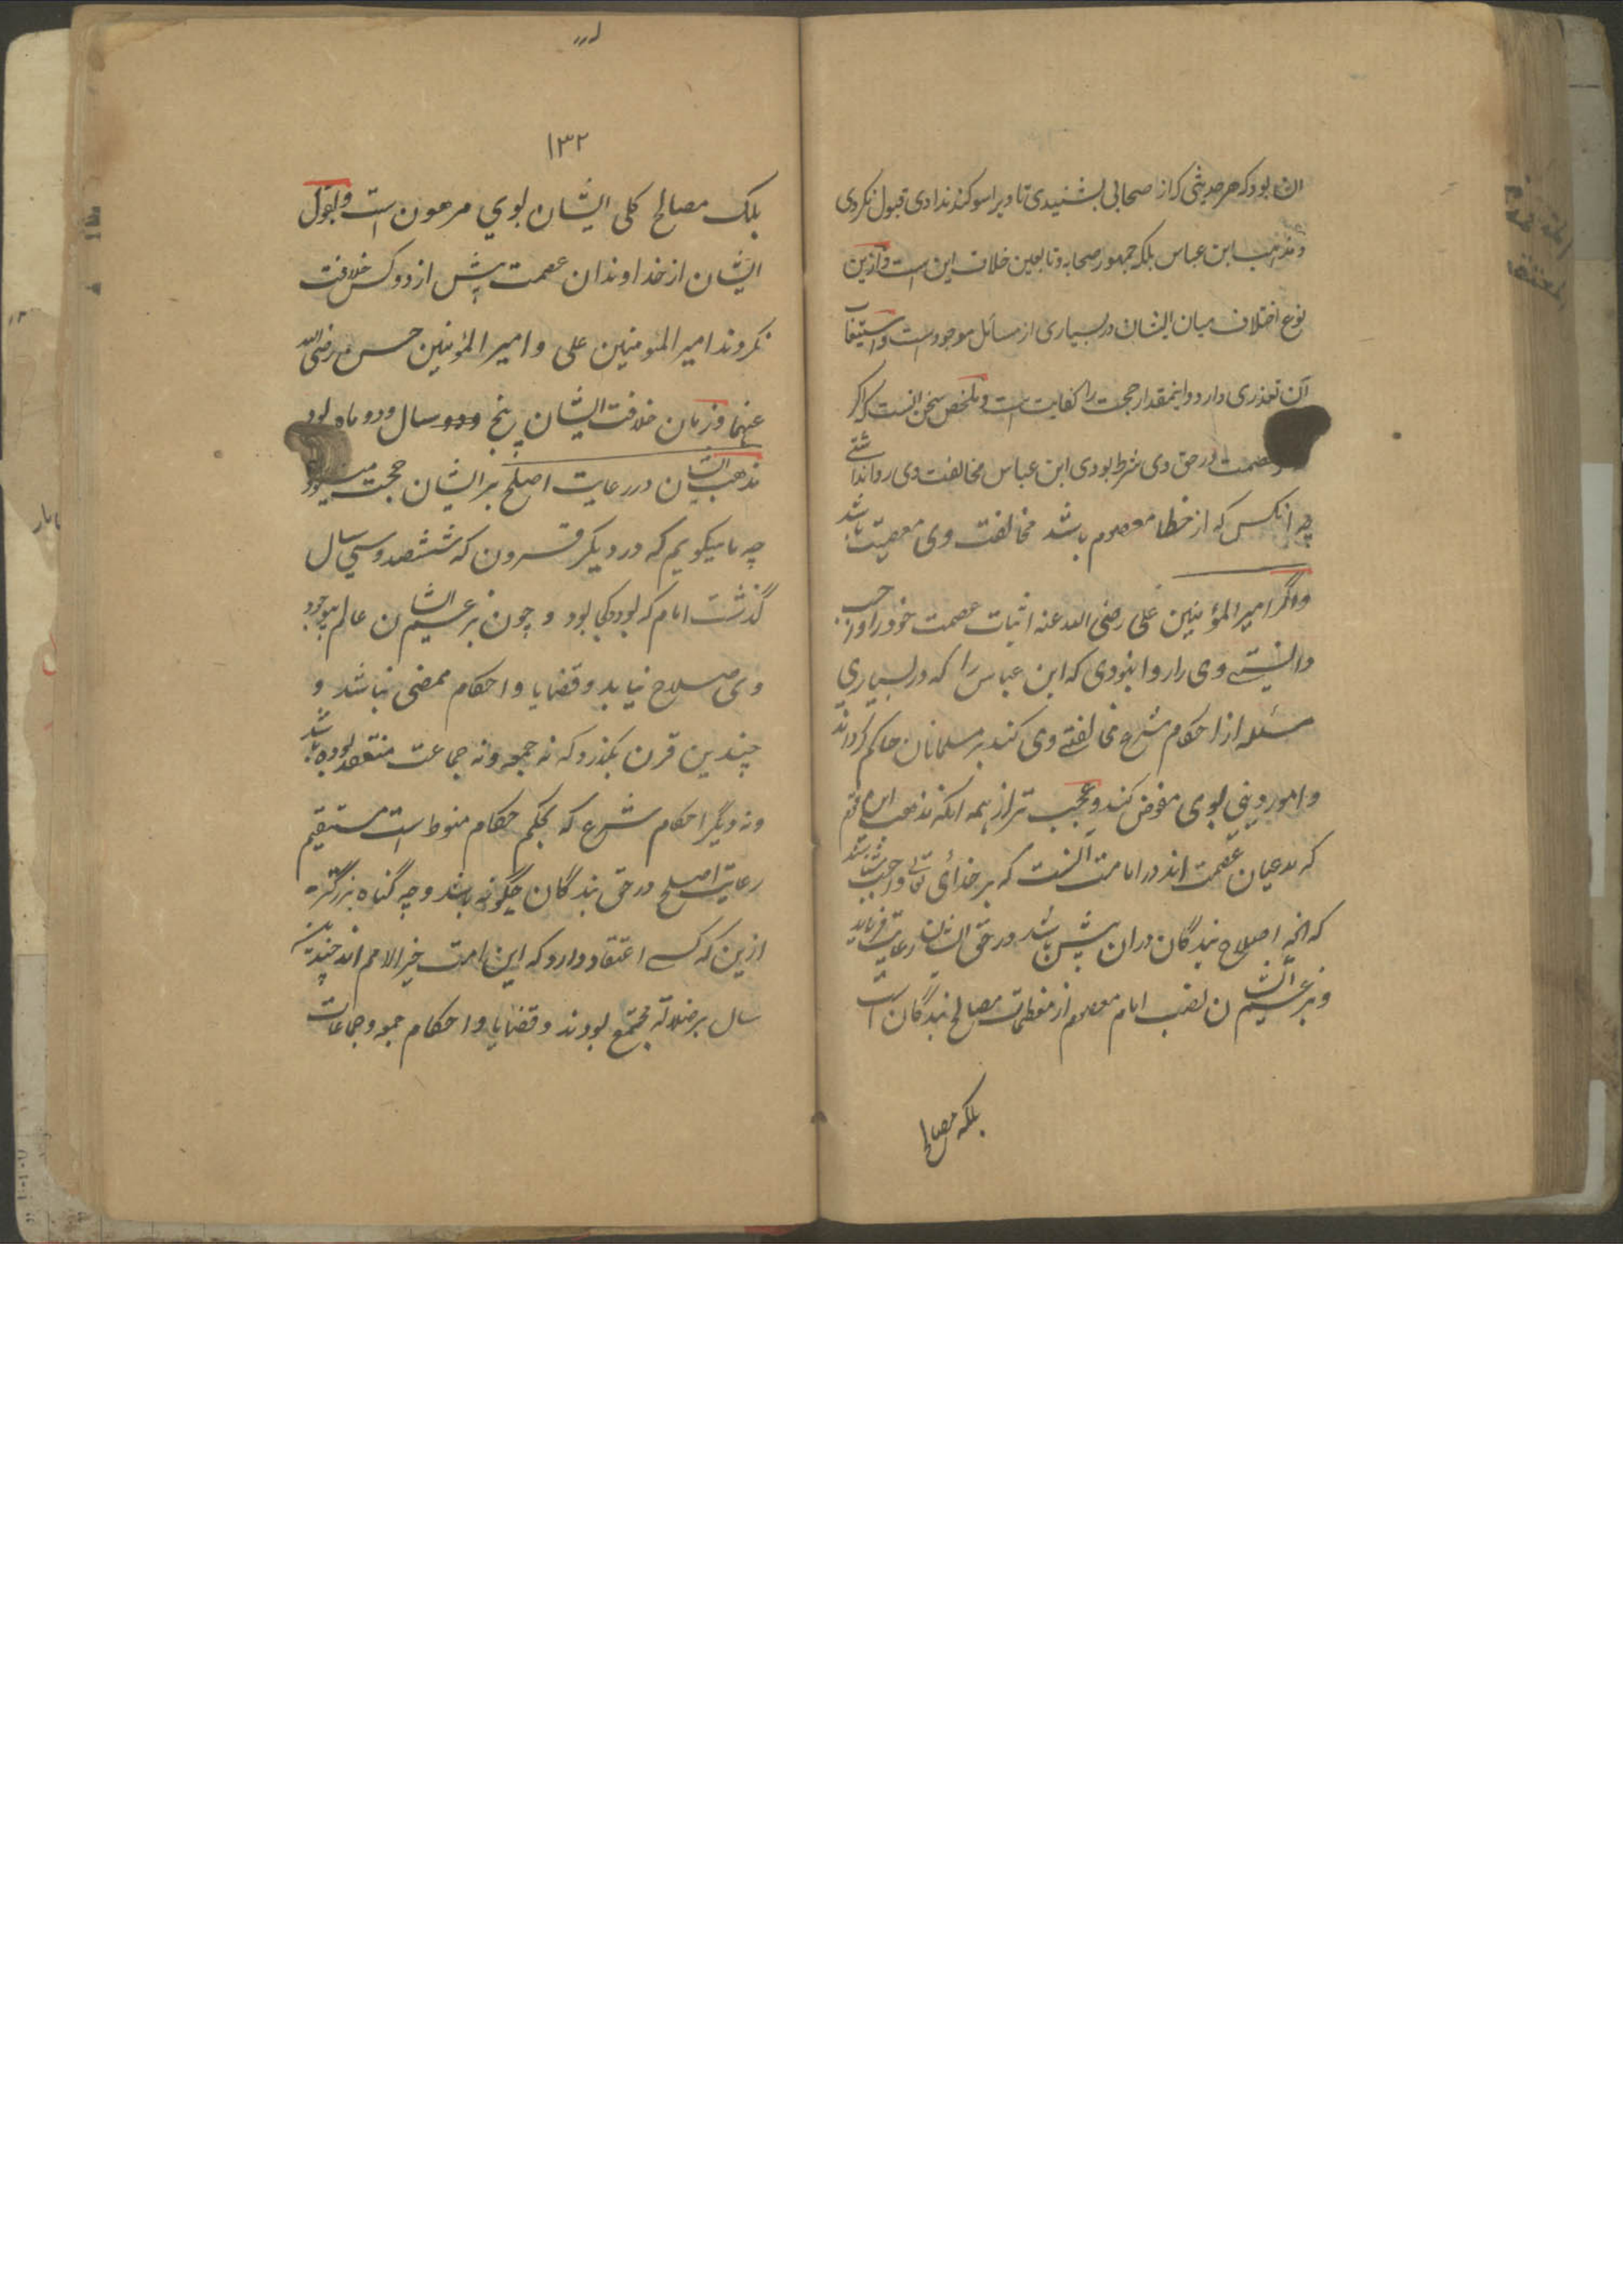 آن بود که هر حدیثی که از صحابی بشنیدی تا ویرا سوکند ندادی قبول نکردی
و مذهب ابن عباس بلکه جمهور صحابه و تابعین خلاف این است و ازین
نوع اختلاف میان ایشان در بسیاری از مسائل موجود است و استیعاب
آن تعذری دارد و اینمقدار حجت را کفایت است و ملخص سخن آنست که اکر
عصمت در حق وی شرط بودی ابن عباس مخالفت وی روا نداشتی
چه آنکس که از خطا معصوم باشد مخالفت وی معصیت باشد
و اگر امیر المؤمنین علی رضی الله عنه اثبات عصمت خود را واجب
دانستی وی را روا نبودی که ابن عباس را که در بسیاری
مسئله از احکام شرع مخالفت وی کند بر مسلمانان حاکم کرداند
و امور دینی بوی مفوض کند و عجب تر از همه آنکه مذهب این قوم
که مدعیان عصمت اند در امامت آنست که بر خدای تعالی واجب باشد
که آنچه اصلاح بندگان دران بیش باشد در حق ایشان رعایت فرماید
و بزعم ایشان نصب امام معصوم از معظمات مصالح بندگان است
بلکه مصالح
۱۳۲
بلک مصالح کلی ایشان بوی مرهون است و بقول
ایشان از خداوندان عصمت بیش از دو کس خلافت
نکردند امیر المؤمنین علی و امیر المؤمنین حسن رضی الله
عنهما و زمان خلافت ایشان پنج سال و دو ماه بود
مذهب ایشان در رعایت اصلح بر ایشان حجت میشود
چه ما میکویم که در دیکر قرون که ششصد و سی سال
گذشت امام که بود و کجا بود و چون بزعم ایشان عالم بوجود
وی صلاح نیابد و قضایا و احکام ممضی نباشد و
چندین قرن بکذرد که نه جمعه و نه جماعت منعقد بوده باشد
و نه دیگر احکام شرع که بحکم حکام منوط است مستقیم
رعایت اصلح در حق بندگان چگونه باشد و چه گناه بزرگتر
ازین که کسی اعتقاد دارد که این امت خیر الامم اند چندین
سال بر ضلالة مجتمع بودند و قضایا و احکام جمعه و جماعات